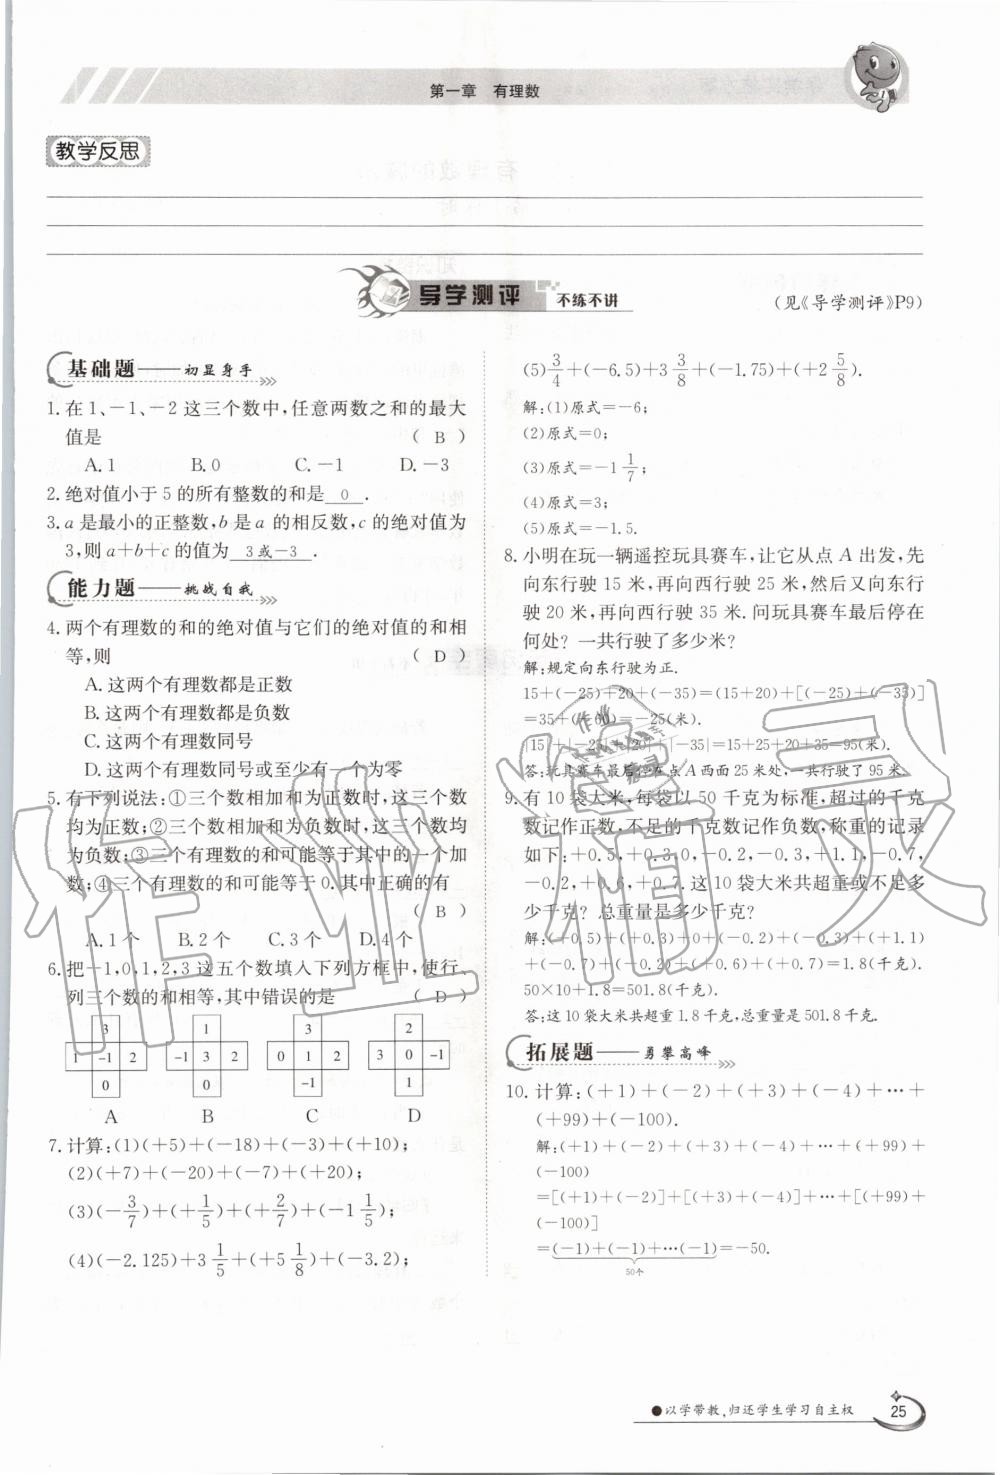 第一章　有理数
教学反思
导学测评 不练不讲
(见《导学测评》P9)
基础题——初显身手
1. 在 1、－1、－2 这三个数中,任意两数之和的最大
值是 ( B )
A. 1 B. 0 C. －1 D. －3
2. 绝对值小于 5 的所有整数的和是 0 .
3. a 是最小的正整数,b 是 a 的相反数,c 的绝对值为
3,则 a＋b＋c 的值为 3或－3 .
能力题——挑战自我
4. 两个有理数的和的绝对值与它们的绝对值的和相
等,则 ( D )
A. 这两个有理数都是正数
B. 这两个有理数都是负数
C. 这两个有理数同号
D. 这两个有理数同号或至少有一个为零
5. 有下列说法:①三个数相加和为正数时,这三个数
均为正数;②三个数相加和为负数时,这三个数均
为负数;③三个有理数的和可能等于其中的一个加
数;④三个有理数的和可能等于 0.其中正确的有
( B )
A. 1 个 B. 2 个 C. 3 个 D. 4 个
6. 把－1,0,1,2,3 这五个数填入下列方框中,使行、
列三个数的和相等,其中错误的是 ( D )
3 1 3 2
1 －1 2 －1 3 2 0 1 2 3 0 －1
0 0 －1 1
A B C D
7. 计算:(1)(＋5)＋(－18)＋(－3)＋(＋10);
(2)(＋7)＋(－20)＋(－7)＋(＋20);
(3)(－3/7)＋(＋1/5)＋(＋2/7)＋(－1 1/5);
(4)(－2.125)＋3 1/5＋(＋5 1/8)＋(－3.2);
(5)3/4＋(－6.5)＋3 3/8＋(－1.75)＋(＋2 5/8).
解:(1)原式＝－6;
(2)原式＝0;
(3)原式＝－1 1/7;
(4)原式＝3;
(5)原式＝－1.5.
8. 小明在玩一辆遥控玩具赛车,让它从点 A 出发,先
向东行驶 15 米,再向西行驶 25 米,然后又向东行
驶 20 米,再向西行驶 35 米. 问玩具赛车最后停在
何处? 一共行驶了多少米?
解:规定向东行驶为正.
15＋(－25)＋20＋(－35)＝(15＋20)＋[(－25)＋(－35)]
＝35＋(－60)＝－25(米).
|15|＋|－25|＋|20|＋|－35|＝15＋25＋20＋35＝95(米).
答:玩具赛车最后停在点 A 西面 25 米处,一共行驶了 95 米.
9. 有 10 袋大米,每袋以 50 千克为标准,超过的千克
数记作正数,不足的千克数记作负数,称重的记录
如下:＋0.5,＋0.3,0,－0.2,－0.3,＋1.1,－0.7,
－0.2,＋0.6,＋0.7. 这 10 袋大米共超重或不足多
少千克? 总重量是多少千克?
解:(＋0.5)＋(＋0.3)＋0＋(－0.2)＋(－0.3)＋(＋1.1)
＋(－0.7)＋(－0.2)＋(＋0.6)＋(＋0.7)＝1.8(千克).
50×10＋1.8＝501.8(千克).
答:这 10 袋大米共超重 1.8 千克,总重量是 501.8 千克.
拓展题——勇攀高峰
10. 计算:(＋1)＋(－2)＋(＋3)＋(－4)＋…＋
(＋99)＋(－100).
解:(＋1)＋(－2)＋(＋3)＋(－4)＋…＋(＋99)＋
(－100)
＝[(＋1)＋(－2)]＋[(＋3)＋(－4)]＋…＋[(＋99)＋
(－100)]
＝(－1)＋(－1)＋…(－1)＝－50.
50个
●以学带教,归还学生学习自主权
25
作业精灵